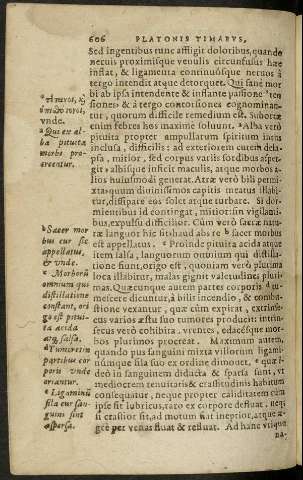 606 PLATONIS TIMAEVS,
Sed ingentibus tunc affligit doloribus, quando
neruis proximisque venulis circunfusus hæc
inflat, & ligamenta continuósque neruos à
tergo intendit atque detorquet. Qui sanè mor
bi ab ipsa intendente & inflante passione ten
siones & à tergo contorsiones cognominan-
tur, quorum difficile remedium est. Subortæ
enim febres hos maximè soluunt. Alba verò
pituita propter ampullarum spiritum intra
inclusa, difficilis: ad exteriorem autem dela-
psa, mitior, sed corpus variis sordibus asper-
git albisque inficit maculis, atque morbos a-
lios huiusmodi generat. Atræ verò bili permi-
xta quum diuinissimos capitis meatus illabi-
tur, dissipare eos solet atque turbare. Si dor-
mientibus id contingat, mitior: sin vigilanti-
bus, expulsu difficilior. Cùm verò sacræ natu-
ræ languor hic sit haud abs re sacer morbus
est appellatus. Proinde pituita acida atque
item salsa, languorum omnium qui distilla-
tione fiunt, origo est, quoniam verò plurima
loca illabitur, malas gignit valetudines pluri-
mas. Quæcunque autem partes corporis tu-
mescere dicuntur, à bilis incendio, & combu-
stione vexantur, quæ cùm expirat, extrinse-
cus varios æstu suo tumores producit: intrin-
secus verò cohibita vrentes, edacésque mor-
bos plurimos procreat. Maximum autem,
quando pus sanguini mixta villorum ligami-
númque fila suo ex ordine dimouet,
deò in sanguinem didacta & sparsa sunt, vt
mediocrem tenuitatis & crassitudinis habitum
consequatur, neque propter caliditatem cùm
ipse sit lubricus, raro ex corpore defluat, neq;
si crassior sit, ad motum fiat ineptior, atque æ-
grè per venas fluat & refluat. Ad hanc vtique
na-
vnde.
Quæ ex al-
ba pituita
morbi pro-
creentur.
Sacer mor
bus cur sic
appellatus,
& vnde.
Morborū
omnium qui
distillatione
constant, ori
go est pitui-
ta acida
atq; salsa.
Tumores in
partibus cor
poris vnde
oriantur.
Ligaminū
fila cur san-
guini sint
aspersa.